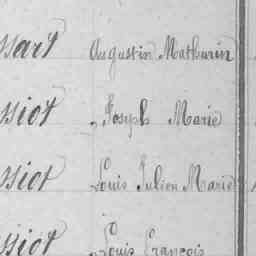 ssart Augustin Mathurin
ssiot Joseph Marie
ssiot Louis Julien Marie
ssiot Louis François